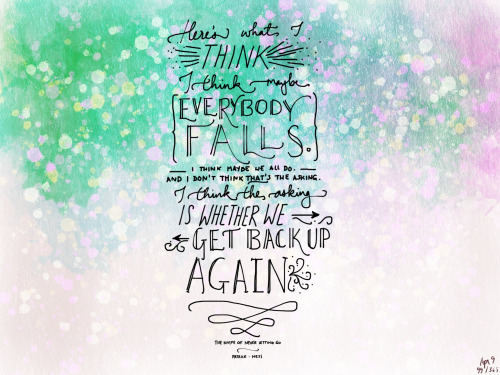 Here's what I
THINK
I think maybe
EVERYBODY
FALLS.
I THINK MAYBE WE ALL DO.
AND I DON'T THINK THAT'S THE ASKING.
I think the asking
IS WHETHER WE
GET BACK UP
AGAIN
THE KNIFE OF NEVER LETTING GO
PATRICK NESS
Apr 9
99/365